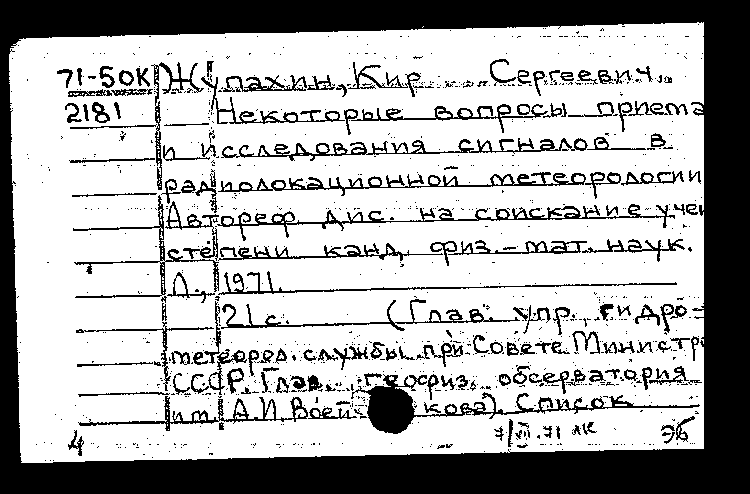 71-5ОК Жупахин, Кир Сергеевич.
2181 Некоторые вопросы приема
и исследования сигналов в
радиолокационной метеорологии
Автореф дис. на соискание учен
степени канд, физ.-мат. наук.
Л., 1971.
21 с. (Глав. упр. гидро-
метеорол. службы при Совете Министро
СССР. Глав. геофиз. обсерватория
им. А.И. Воейкова). Список
4 7/VII.71 ЛК ЭБ